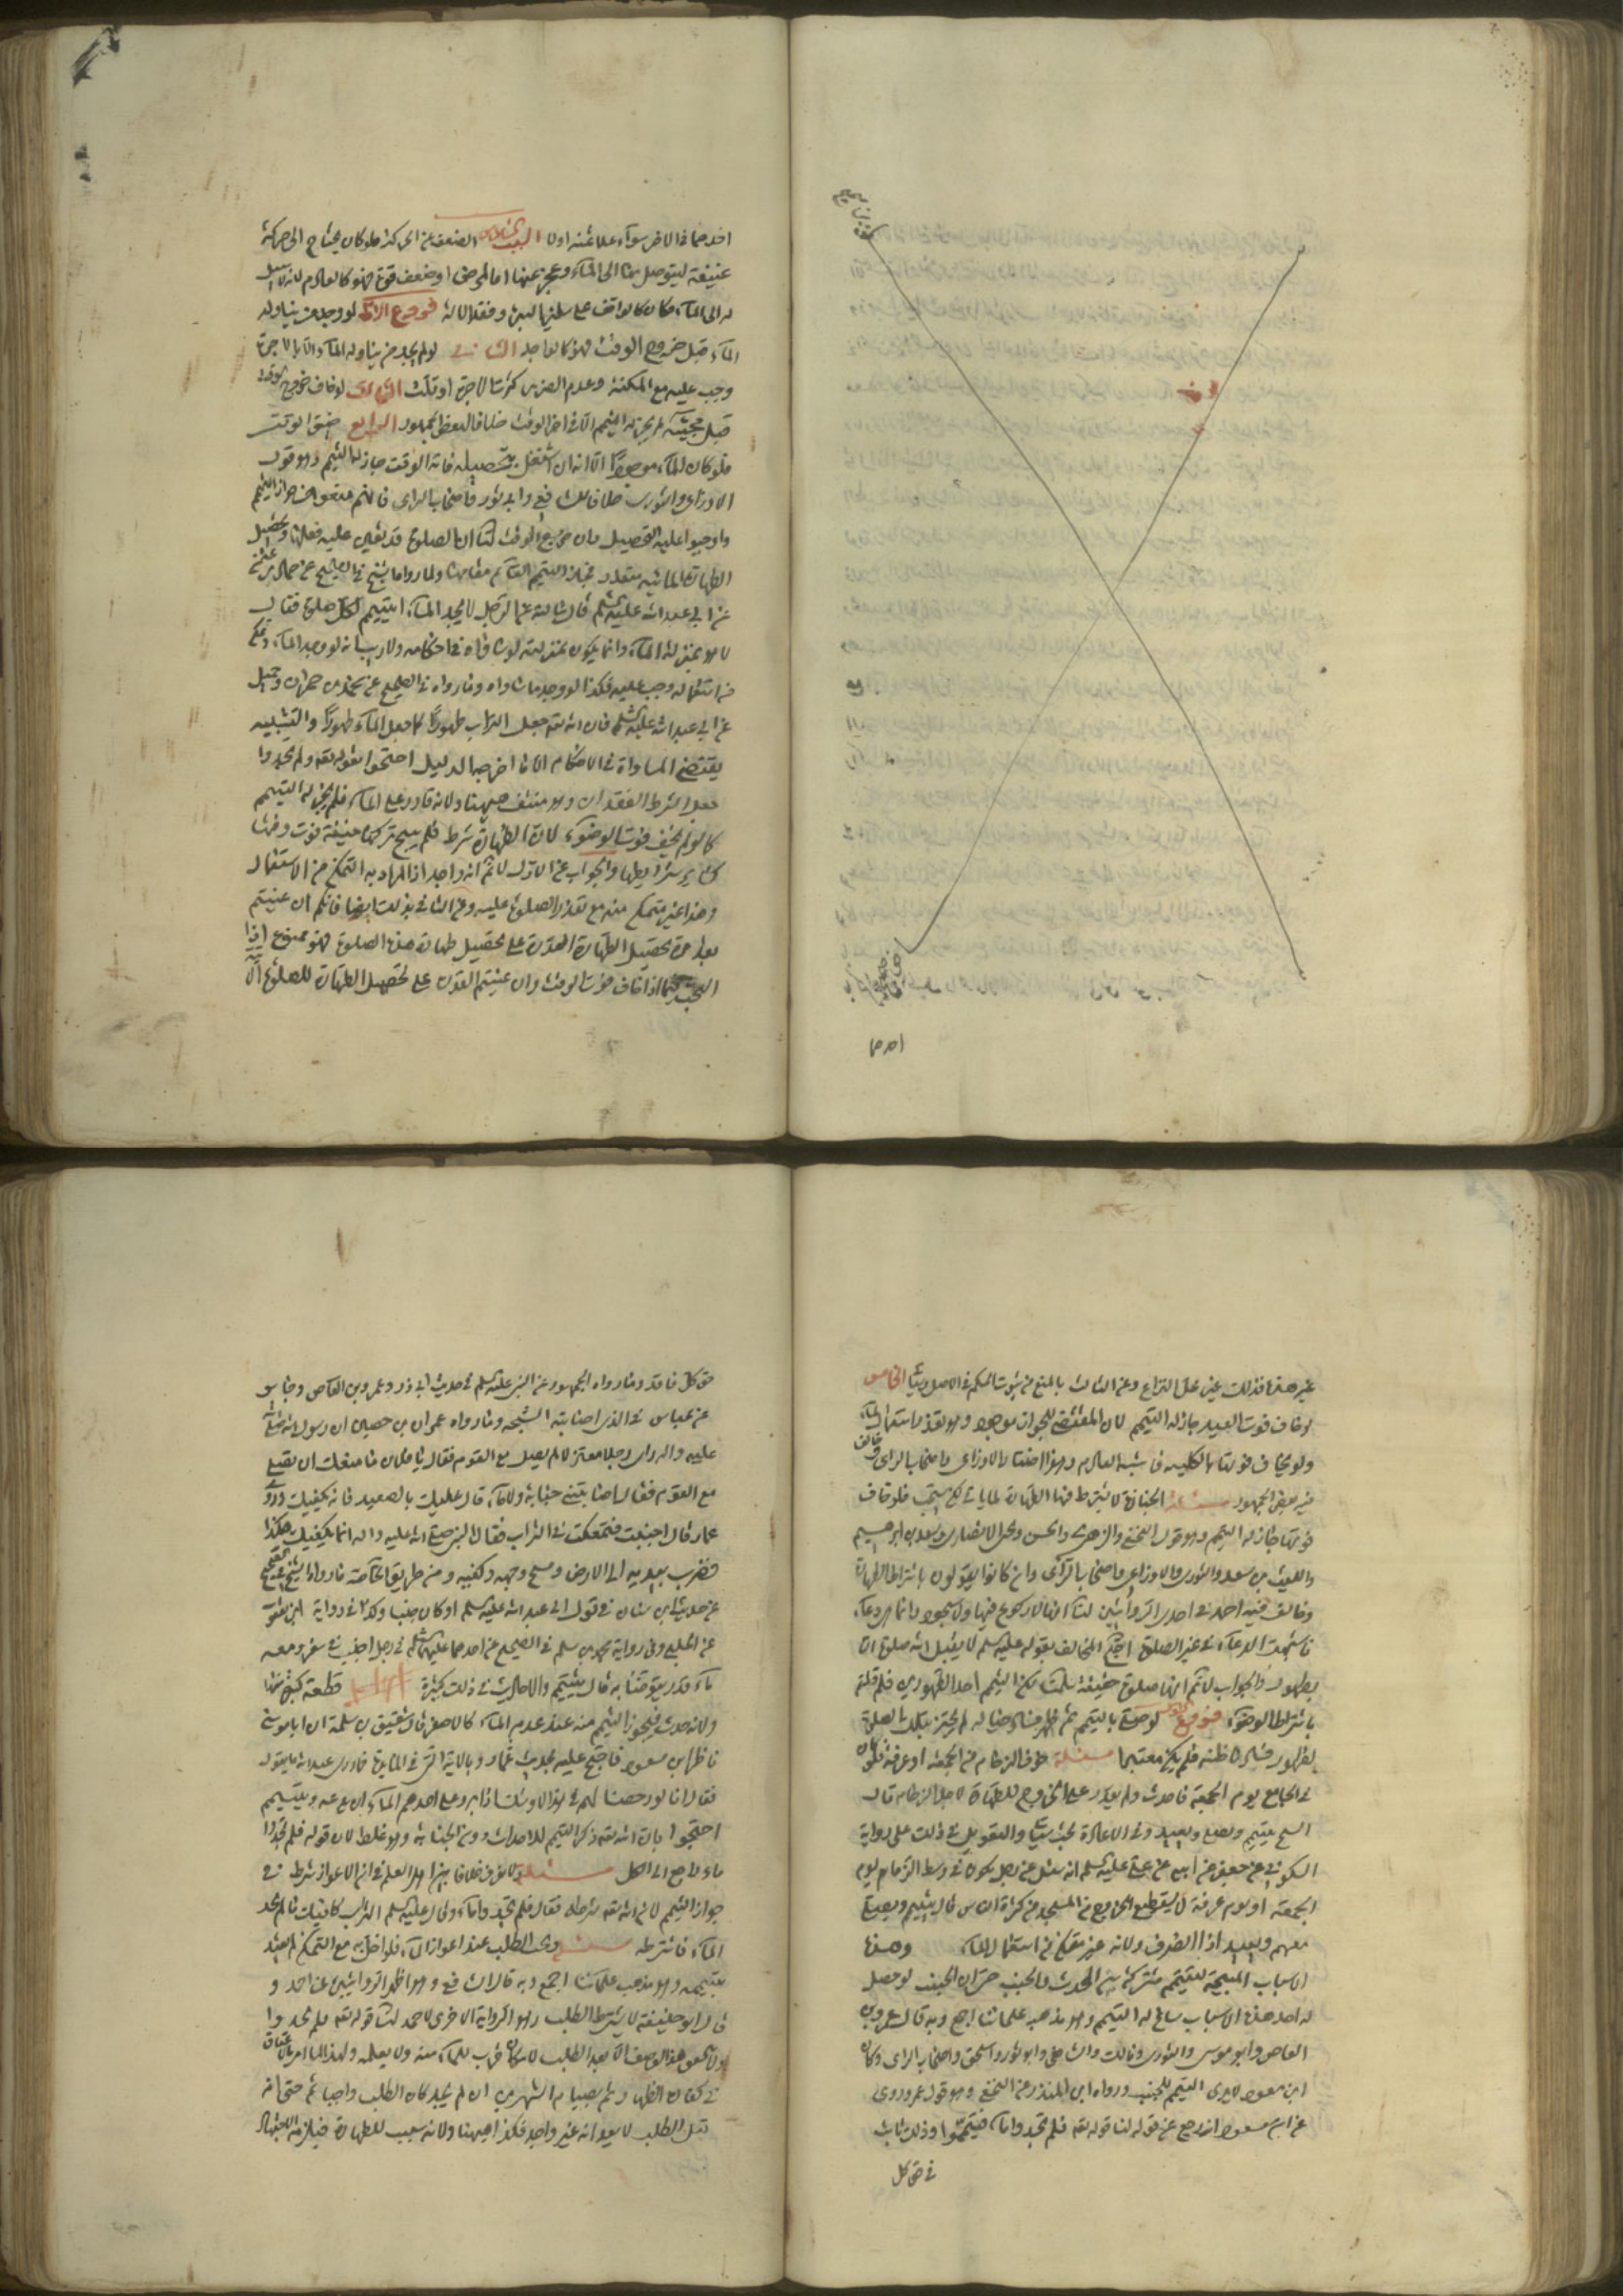 احدهما
احدهما فى الاخر سوآء علا عنه اولا البحث السادس الضعف عن الحركة فلو كان يحتاج الى حركة
عنيفة ليتوصل بها الى المآء وعجز عنها اما لمرض او ضعف قوة فهو كالعادم لانه لا سبيل
له الى المآء فكان كالواقف على سلم البئر وفقد الالة فروع الاول لو وجد من يناوله
المآء قبل خروج الوقت فهو كالواجد الثانى لو لم يجد من يناوله المآء الا بالاجرة
وجب عليه مع المكنة وعدم الضرر كثرت الاجرة او قلت الثالث لو خاف خروج الوقت
قبل مجيئه لم يجز له التيمم الا فى اخر الوقت خلافا لبعض الجمهور الرابع ضيق الوقت
فلو كان المآء موجودا الا انه ان اشتغل بتحصيله فاته الوقت جاز له التيمم وهو قول
الاوزاعى والثورى خلافا للشافعى وابى ثور واصحاب الراى فانهم منعوا من جواز التيمم
واوجبوا عليه التحصيل وان خرج الوقت لنا ان الصلوة قد تعين عليه فعلها وتحصيل
الطهارة المائية متعذر فجاز التيمم القآئم مقامها ولما رواه الشيخ فى الصحيح عن حماد بن عثمن
عن ابى عبدالله عليه السلم قال سالته عن الرجل لا يجد المآء ايتيمم لكل صلوة فقال
لا هو بمنزلة المآء وانما يكون بمنزلته لو ساواه فى احكامه ولا ريب انه لو وجد المآء وتمكن
من استعماله وجب عليه فكذا لو وجد ما ساواه وما رواه فى الصحيح عن محمد بن حمران وجميل
عن ابى عبد الله عليه السلم قال ان الله تعه جعل التراب طهورا كما جعل المآء طهورا والتشبيه
يقتضى المساواة فى الاحكام الا ما اخرجه الدليل احتجوا بقوله تعه فلم تجدوا
جعل الشرط الفقدان وهو منتف ههنا ولانه قادر على المآء فلم يجز له التيمم
كما لو لم يخف فوت الوضوء لان الطهارة شرط فلم يبح تركها خيفة فوت وقتها
كسآئر شرايطها والجواب عن الاول لا نم انه واجد اذ المراد به التمكن من الاستعمال
وهذا غير متمكن منه مع تعذر الصلوة عليه وعن الثانى بذلك ايضا فانكم ان عنيتم
بقدرة تحصيل الطهارة القدرة على تحصيل طهارة هذه الصلوة فهو ممنوع اذا
البحث فيما اذا خاف فوت الوقت وان عنيتم القدرة على تحصيل الطهارة للصلوة الاتية
غير هذه فذلك غير محل النزاع وعن الثالث بالمنع من ثبوت الحكم فى الاصل وسيأتى الخامس
لو خاف فوت العيد جاز له التيمم لان المقتضى للجواز موجود وهو تعذر استعمال المآء
ولو يخاف فوتها بالكلية فاشبه العادم وهو اختيار الاوزاعى واصحاب الراى وخالف
فيه بعض الجمهور مسئلة الجنازة لا يشترط فيها الطهارة لما ياتى لكن يستحب فلو خاف
فوتها جاز له التيمم وهو قول النخعى والزهرى والحسن ويحيى الانصارى وسعد بن ابرهيم
والليث بن سعد والثورى والاوزاعى واصحاب الراى وان كانوا يقولون باشتراط الطهارة
وخالف فيه احمد فى احدى الروايتين لنا انها لا ركوع فيها ولا سجود وانما هى دعآء
فاشبهت الدعآء فى غير الصلوة احتج المخالف بقوله عليه السلم لا يقبل الله صلوة الا
بطهور والجواب لا نم انها صلوة حقيقة سلمنا لكن التيمم احد الطهورين فلم قلتم
باشتراط الوضوء فروع الاول لو صلى بالتيمم ثم ظهر فساد خياله لم يجتز بتلك الصلوة
لظهور فساد ظنه فلم يكن معتبرا مسئلة خوف الزحام من الجمعة او عرفة فلو كان
فى الجامع يوم الجمعة فاحدث ولم يقدر على الخروج للطهارة لاجل الزحام قال
الشيخ يتيمم ويصلى ويعيد وفى الاعادة بحث سياتى والتعويل فى ذلك على رواية
السكونى عن جعفر عن ابيه عن على عليه السلم انه سئل عن رجل يكون فى وسط الزحام يوم
الجمعة او يوم عرفة لا يستطيع الخروج من المسجد من كثرة الناس قال يتيمم ويصلى
معهم ويعيد اذا انصرف ولانه غير متمكن من استعمال المآء وهذه
الاسباب المبيحة للتيمم مشتركة بين المحدث والجنب حتى ان الجنب لو حصل
له احد هذه الاسباب ساغ له التيمم وهو مذهب علمائنا اجمع وبه قال عمرو بن
العاص وابو موسى والثورى ومالك والشافعى وابو ثور واسحق واصحاب الراى وكان
ابن مسعود لا يرى التيمم للجنب ورواه ابن المنذر عن النخعى وهو قول عمر وروى
عن ابن مسعود انه رجع عن قوله لنا قوله تعه فلم تجدوا مآء فتيمموا وذلك ثابت
فى حق كل
حق كل فاقد وما رواه الجمهور عن النبى عليه السلم فى حديث ابى ذر وعمرو بن العاص وجابر
عن عباس فى الذى اصابته الشجه وما رواه عمران بن حصين ان رسول الله صلى الله
عليه واله راى رجلا معتزلا لم يصل مع القوم فقال يا فلان ما منعك ان تصلى
مع القوم فقال اصابتنى جنابة ولا مآء قال عليك بالصعيد فانه يكفيك وروى
عمار قال اجنبت فتمعكت فى التراب فقال النبى صلى الله عليه واله انما يكفيك هكذا
وضرب بيديه الى الارض ومسح وجهه وكفيه ومن طريق الخاصة ما رواه الشيخ فى الصحيح
عن عبدالله بن سنان فى قول ابى عبد الله عليه السلم او كان جنبا وكذا فى رواية ابن يعقوب
عن الحلبى وفى رواية محمد بن مسلم فى الصحيح عن احدهما عليهما السلم فى رجل اجنب فى سفر ومعه
مآء قدر ما يتوضا به قال يتيمم والاحاديث فى ذلك كثيرة قطعة كبيرة منها
ولانه حدث فيجوز التيمم منه عند عدم المآء كالاصغر قال شقيق بن سلمة ان ابا موسى
ناظر ابن مسعود فاحتج عليه بحديث عمار وبالاية التى فى المآئدة فما درى عبد الله ما يقول
فقال انا لو رخصنا لهم فى هذا لاوشك اذا برد على احدهم المآء ان يدعه ويتيمم
احتجوا بان الله تعه ذكر التيمم للاحداث دون الجنابة وهو غلط لان قوله فلم تجدوا
مآء راجع الى الكل مسئلة ولا نعرف خلافا بين اهل العلم فى ان الاعواز شرط فى
جواز التيمم لان الله تعه شرطه فقال فلم تجدوا مآء وقال عليه السلم التراب كافيك ما لم تجد
المآء فاشترطه مسئلة ويجب الطلب عند اعواز المآء فلو اخل به مع التمكن لم يعتد
بتيممه وهو مذهب علمآئنا اجمع وبه قال الشافعى وهو اظهر الروايتين عن احمد و
قال ابو حنيفة لا يشترط الطلب وهو الرواية الاخرى لاحمد لنا قوله تعه فلم تجدوا
ولا يتحقق هذا الوصف الا بعد الطلب لامكان قرب المآء منه ولا يعلمه ولهذا لما امر بالاعتاق
فى كفارة الظهار ثم بصيام الشهرين ان لم يجد كان الطلب واجبا ثم حتى انه
قبل الطلب لا يعد انه غير واجد فكذا ههنا ولانه سبب للطهارة فيلزمه الاجتهاد